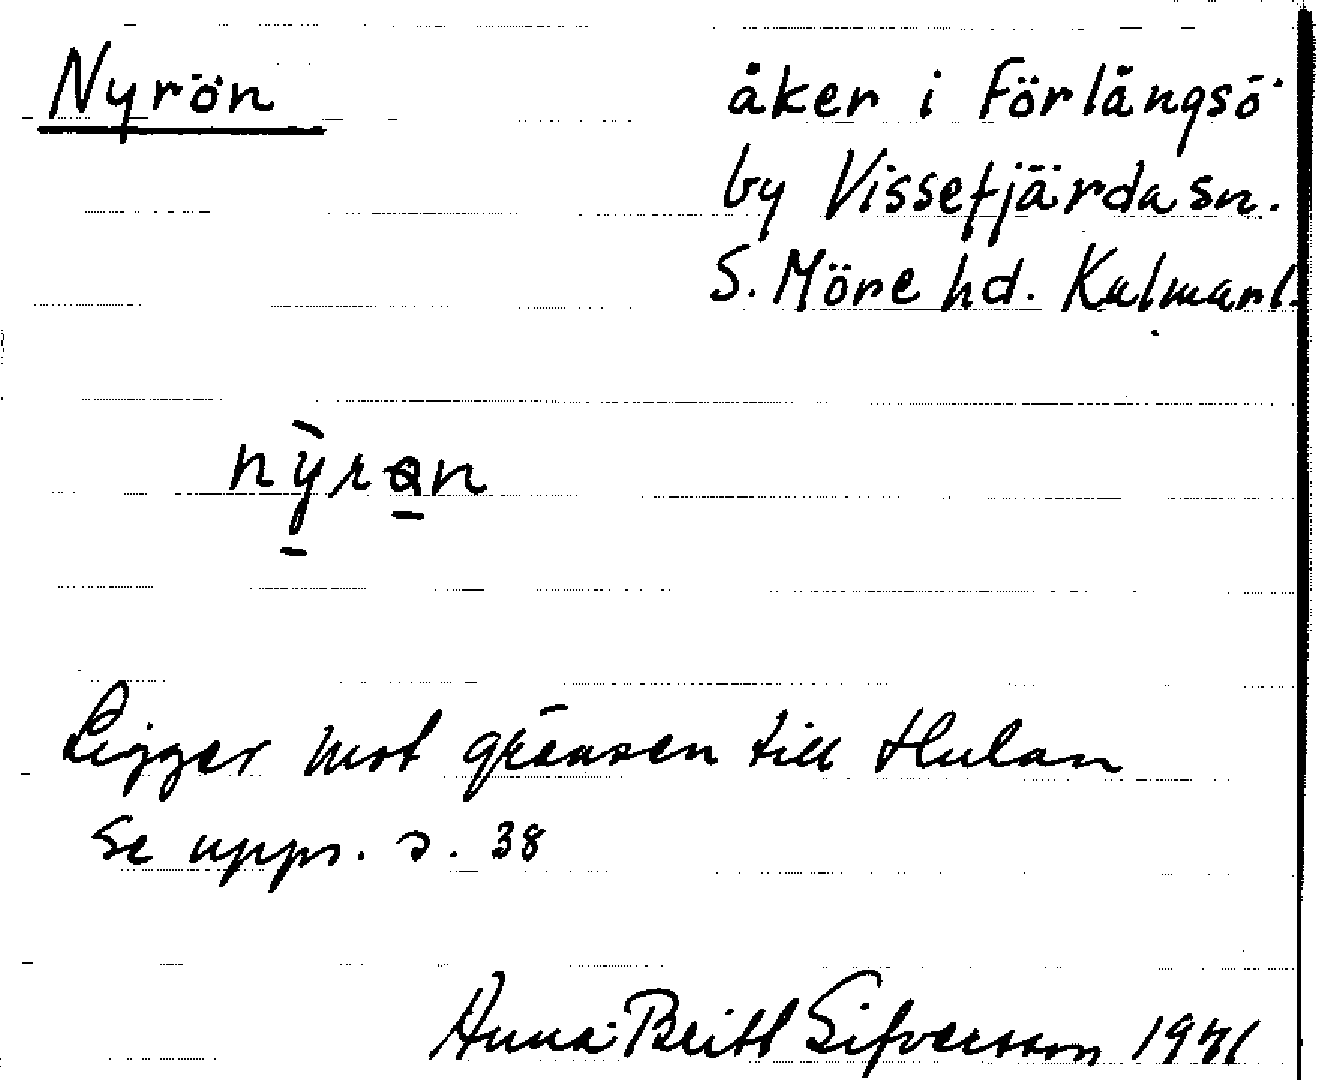 Nyrön
åker i Förlångsö
by Vissefjärda sn.
S. Möre hd. Kalmarl.
Ligger mot gränsen till Hulan
Se upps. s. 38
Anna-Britt Sifversson 1971